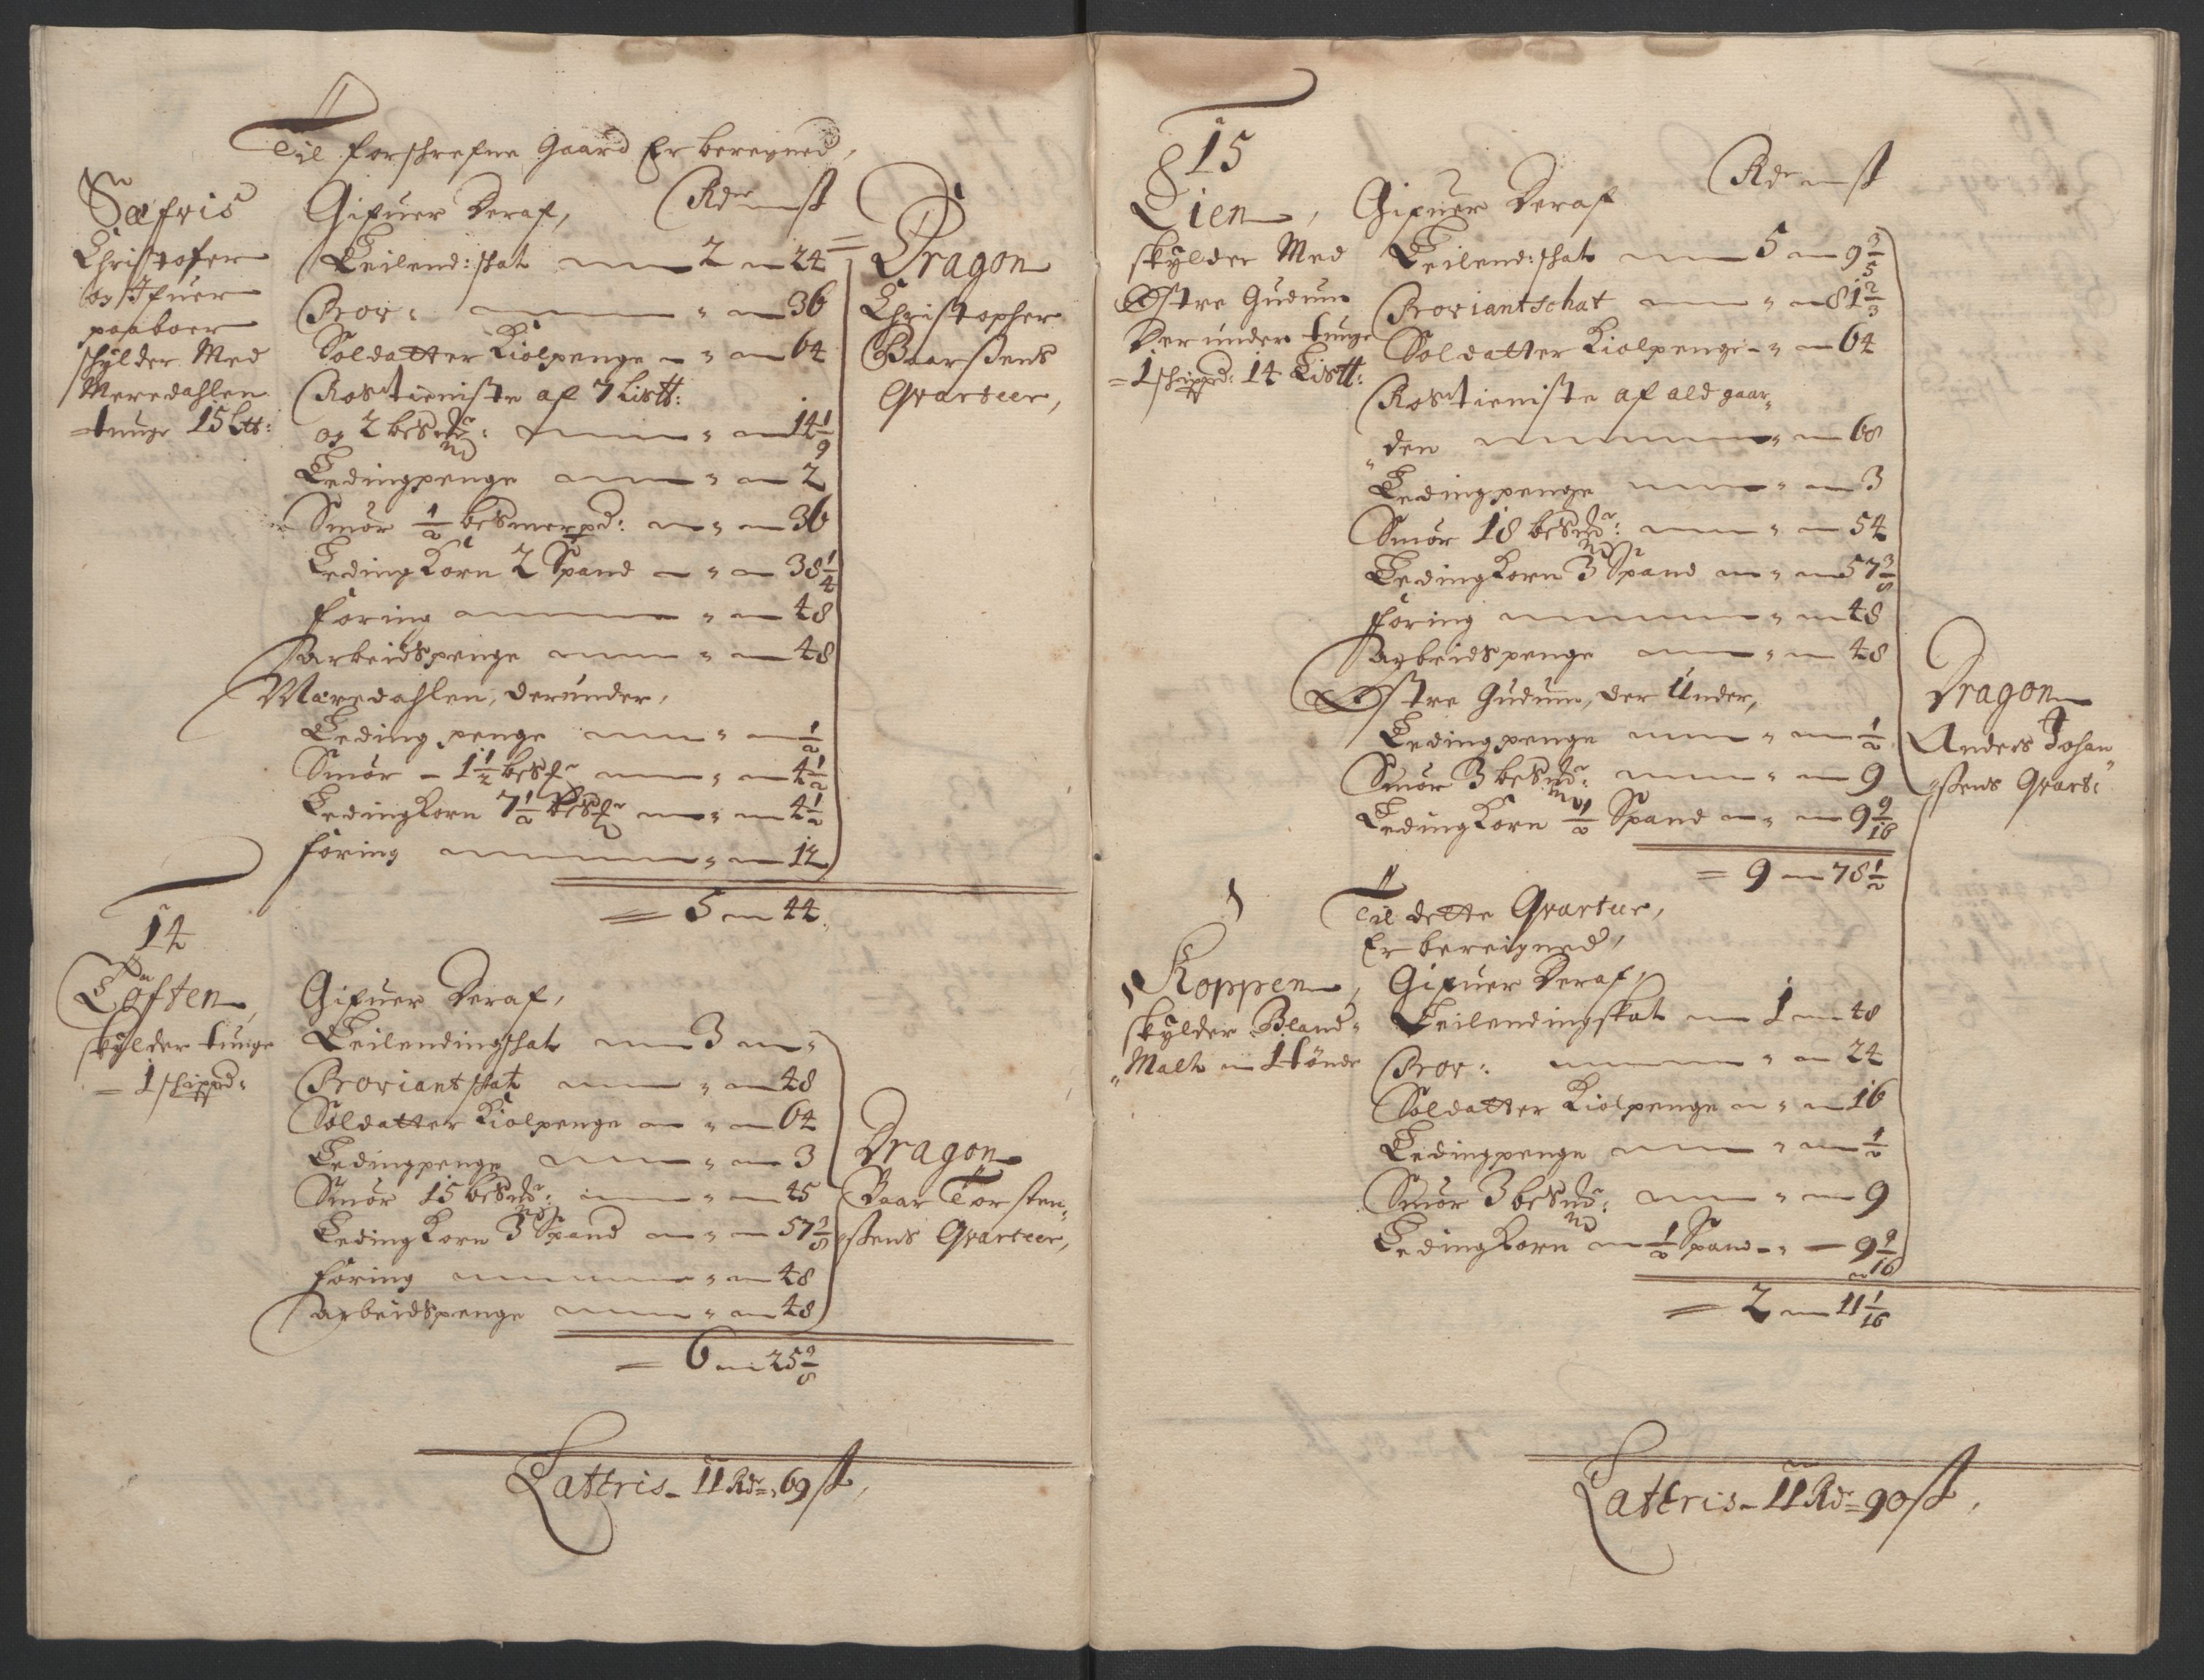 Til forschrefne Gaard Er beregned,
Sæfris
Christofer
og Ifuer
paaboer
schylder Med
Meredahlen
tunge 15 Ltt:
Gifuer Deraf, Rdr – ß
Leilend: skat – 2 – 24
Prov: – " – 36
Soldatter Kiolpenge – " – 64
Rostieniste af 7 Listt:
og 2 besmr: – " – 14 1/9
Ledingpenge – " – 2
Smör 1/2 besmerpd: – " – 36
Leding Korn 2 Spand – " – 38 1/4
foring – " – 48
Arbeidspenge – " – 48
Meredahlen, derunder,
Leding penge – " – 1/2
Smör – 1 1/2 besmr – " – 4 1/2
Leding Korn 7 1/2 besmr – " – 4 1/2
foring – " – 12
= 5 – 44
Dragon
Christopher
Baarßens
Qvarteer,
14
Töften,
skylder tunge
– 1 schippd:
Gifuer Deraf,
Leilendingschat – 3 – "
Proviantschat – " – 48
Soldatter Kiolpenge – " – 64
Ledingpenge – " – 3
Smör 15 besmr: – " – 45
Leding Korn 3 Spand – " – 57 3/8
foring – " – 48
Arbeidspenge – " – 48
= 6 – 25 3/8
Dragon
Baar Torsten-
ßens Qvarteer,
Latteris – 11 Rdr – 69 ß,
15
Lien,
skylder Med
Østre Gudum
Derunder tunge
– 1 schippd: 14 Listt:
Gifuer Deraf Rdr – ß
Leilend: schat – 5 – 9 3/5
Proviantschat – " – 81 2/3
Soldatter Kiolpenge – " – 64
Rostieniste af ald gaar-
den – " – 68
Ledingpenge – " – 3
Smör 18 besmr: – " – 54
Leding Korn 3 Spand – " – 57 3/8
foring – " – 48
Arbeidspenge – " – 48
Østre Gudum, der Under,
Ledingpenge – " – 1/2
Smör 3 besmr: – " – 9
Leding Korn 1/2 Spand – " – 9 9/16
= 9 – 78 1/2
Dragon
Anders Johan-
ßens Qvart:
Til dette Qvarteer,
Er bereigned,
Koppen,
skylder Bland-
Malt – 1 tönde
Gifuer Deraf,
Leilendingskat – 1 – 48
Prov: – " – 24
Soldatter Kiolpenge – " – 16
Ledingpenge – " – 1/2
Smör 3 besmr: – " – 9
Leding Korn – 1/2 Spand – " – 9 9/16
= 2 – 11 1/16
Latteris – 11 Rdr – 90 ß,